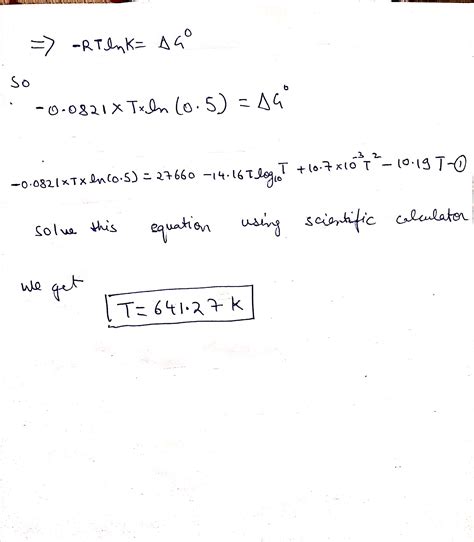 ⇒ -RTlnK = ΔG⁰
So
-0.0821×T×ln(0.5) = ΔG⁰
-0.0821×T×ln(0.5) = 27660 -14.16Tlog₁₀T +10.7×10⁻³T² -10.19T-①
solve this equation using scientific calculator
we get
T = 641.27 K